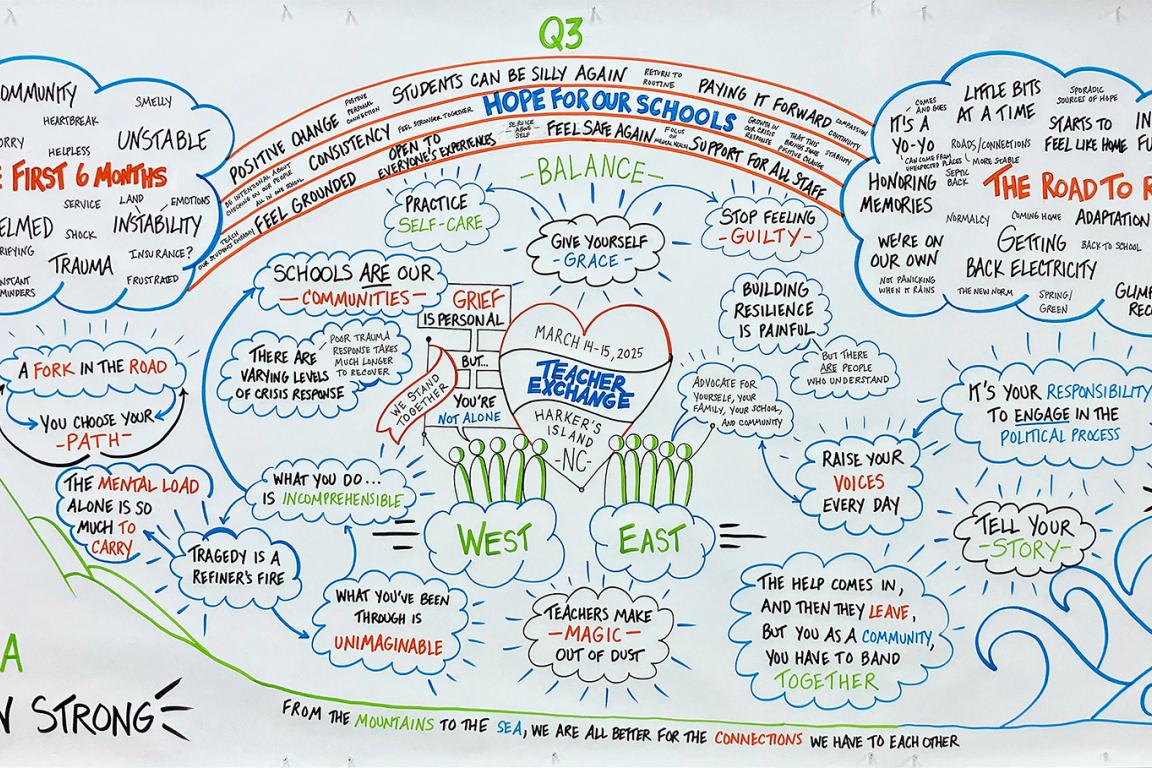 Q3
OMMUNITY
SMELLY
HEARTBREAK
ORRY
HELPLESS
UNSTABLE
FIRST 6 MONTHS
SERVICE
LAND
EMOTIONS
ELMED
SHOCK
INSTABILITY
RIFYING
INSURANCE?
TRAUMA
NSTANT
MINDERS
FRUSTRATED
POSITIVE CHANGE
POSITIVE
PERSONAL
CONNECTION
STUDENTS CAN BE SILLY AGAIN
RETURN TO
ROUTINE
PAYING IT FORWARD
COMPASSION
BE INTENTIONAL ABOUT
CHECKING ON OUR PEOPLE
ALL IN ONE SCHOOL
CONSISTENCY
FEEL STRONGER TOGETHER
HOPE FOR OUR SCHOOLS
GROWTH IN
OUR CRISIS
RESPONSE
THAT THIS
BRINGS SOME
POSITIVE CHANGE
CONTINUITY
STABILITY
TEACH
OUR STUDENTS EMPATHY
FEEL GROUNDED
OPEN TO
EVERYONE'S EXPERIENCES
SERVICE
ABOVE
SELF
FEEL SAFE AGAIN
FOCUS
ON
MENTAL HEALTH
SUPPORT FOR ALL STAFF
COMES
AND GOES
IT'S A
YO-YO
CAN COME FROM
UNEXPECTED PLACES
LITTLE BITS
AT A TIME
SPORADIC
SOURCES OF HOPE
ROADS/CONNECTIONS
MORE STABLE
STARTS TO
FEEL LIKE HOME
IN
FU
HONORING
MEMORIES
SEPTIC
BACK
THE ROAD TO R
NORMALCY
COMING HOME
ADAPTATION
WE'RE ON
OUR OWN
GETTING
BACK ELECTRICITY
BACK TO SCHOOL
NOT PANICKING
WHEN IT RAINS
THE NEW NORM
SPRING/
GREEN
GLIMP
REC
-BALANCE-
PRACTICE
SELF-CARE
GIVE YOURSELF
-GRACE-
STOP FEELING
-GUILTY-
SCHOOLS ARE OUR
-COMMUNITIES-
THERE ARE
VARYING LEVELS
OF CRISIS RESPONSE
POOR TRAUMA
RESPONSE TAKES
MUCH LONGER
TO RECOVER
GRIEF
IS PERSONAL
BUT...
YOU'RE
NOT ALONE
WE STAND
TOGETHER
MARCH 14-15, 2025
TEACHER
EXCHANGE
HARKER'S
ISLAND
-NC-
BUILDING
RESILIENCE
IS PAINFUL
BUT THERE
ARE PEOPLE
WHO UNDERSTAND
ADVOCATE FOR
YOURSELF, YOUR
FAMILY, YOUR SCHOOL,
AND COMMUNITY
A FORK IN THE ROAD
YOU CHOOSE YOUR
-PATH-
THE MENTAL LOAD
ALONE IS SO
MUCH TO
CARRY
WHAT YOU DO...
IS INCOMPREHENSIBLE
TRAGEDY IS A
REFINER'S FIRE
WHAT YOU'VE BEEN
THROUGH IS
UNIMAGINABLE
WEST
EAST
TEACHERS MAKE
-MAGIC-
OUT OF DUST
IT'S YOUR RESPONSIBILITY
TO ENGAGE IN THE
POLITICAL PROCESS
RAISE YOUR
VOICES
EVERY DAY
TELL YOUR
-STORY-
THE HELP COMES IN,
AND THEN THEY LEAVE,
BUT YOU AS A COMMUNITY,
YOU HAVE TO BAND
TOGETHER
A
N STRONG
FROM THE MOUNTAINS TO THE SEA, WE ARE ALL BETTER FOR THE CONNECTIONS WE HAVE TO EACH OTHER